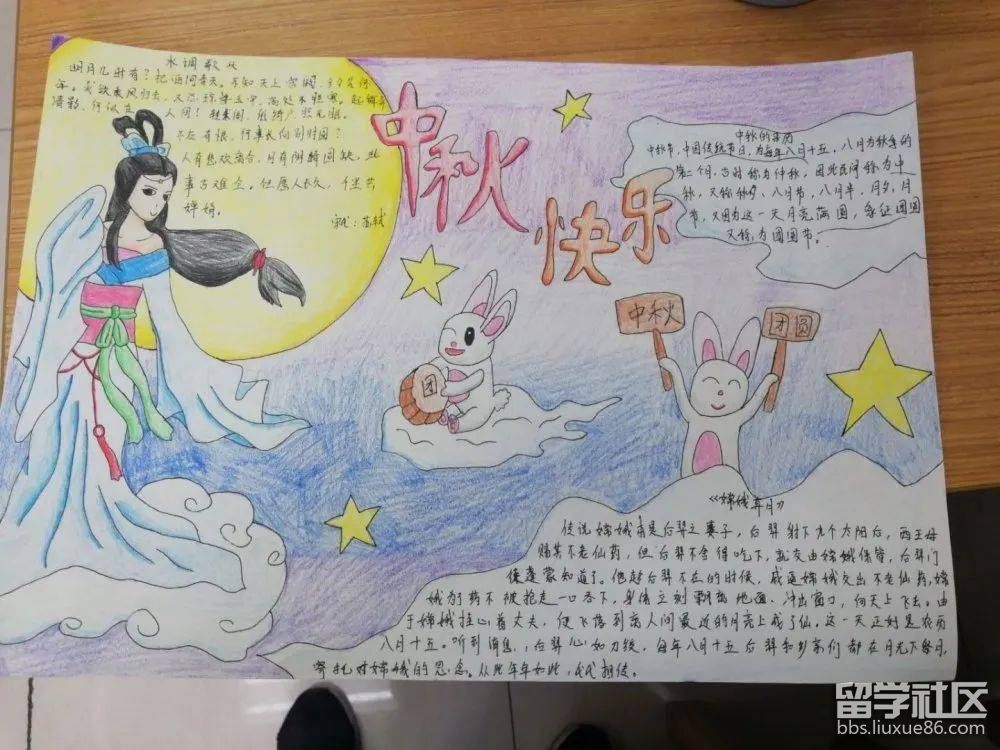 水调歌头
明月几时有？把酒问青天。不知天上宫阙，
年。我欲乘风归去，又恐琼楼玉宇，高处不胜寒。起舞弄
清影，何似在人间！转朱阁，低绮户，照无眠。
不应有恨，何事长向别时圆？
人有悲欢离合，月有阴晴圆缺，此
事古难全。但愿人长久，千里共
婵娟。
宋代：苏轼
中秋
快乐
中秋的来历
中秋节，中国传统节日，为每年八月十五，八月为秋季的
第二个月，古时称为仲秋，因此民间称为中
秋，又称秋夕、八月节，八月半，月夕，月
节，又因为这一天月亮满圆，象征团圆
又称为团圆节。
中秋
团圆
团
《嫦娥奔月》
传说嫦娥是后羿之妻子，后羿射下九个太阳后，西王母
赐其不老仙药，但后羿不舍得吃下，就交由嫦娥保管，后羿门
徒逢蒙知道了。他趁后羿不在的时候，威逼嫦娥交出不老仙药，嫦
娥为了药不被抢走一口吞下，身体立刻飘离地面、冲出窗口，向天上飞去。由
于嫦娥挂心着丈夫，便飞落到离人间最近的月亮上成了仙。这一天正好是农历
八月十五。听到消息，后羿心如刀绞，每年八月十五后羿和乡亲们都在月光下祭月，
寄托对嫦娥的思念。从此年年如此，代代相传。
留学社区
bbs.liuxue86.com